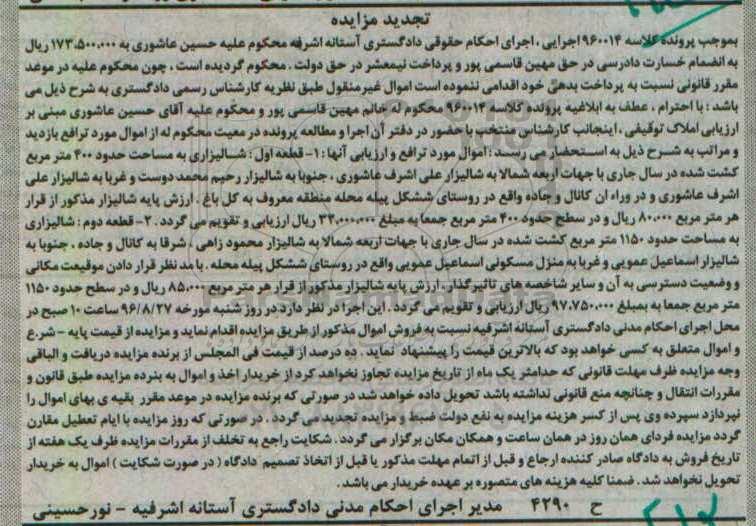 تجدید مزایده
بموجب پرونده کلاسه ۹۶۰۰۱۴ اجرایی ، اجرای احکام حقوقی دادگستری آستانه اشرفیه محکوم علیه حسین عاشوری به ۱۷۳،۵۰۰،۰۰۰ ریال
به انضمام خسارت دادرسی در حق مهین قاسمی پور و پرداخت نیمعشر در حق دولت . محکوم گردیده است ، چون محکوم علیه در موعد
مقرر قانونی نسبت به پرداخت بدهی خود اقدامی ننموده است اموال غیر منقول طبق نظریه کارشناس رسمی دادگستری به شرح ذیل می
باشد : با احترام ، عطف به ابلاغیه پرونده کلاسه ۹۶۰۰۱۴ محکوم له خانم مهین قاسمی پور و محکوم علیه آقای حسین عاشوری مبنی بر
ارزیابی املاک توقیفی ، اینجانب کارشناس منتخب با حضور در دفتر آن اجرا و مطالعه پرونده در معیت محکوم له از اموال مورد ترافع بازدید
و مراتب به شرح ذیل به استحضار می رسد : اموال مورد ترافع و ارزیابی آنها : ۱- قطعه اول : شالیزاری به مساحت حدود ۴۰۰ متر مربع
کشت شده در سال جاری با جهات اربعه شمالا به شالیزار علی اشرف عاشوری ، جنوبا به شالیزار رحیم محمد دوست و غربا به شالیزار علی
اشرف عاشوری و در وراء ان کانال و جاده واقع در روستای ششکل پیله محله منطقه معروف به کل باغ . ارزش پایه شالیزار مذکور از قرار
هر متر مربع ۸۰،۰۰۰ ریال و در سطح حدود ۴۰۰ متر مربع جمعا به مبلغ ۳۲،۰۰۰،۰۰۰ ریال ارزیابی و تقویم می گردد . ۲- قطعه دوم : شالیزاری
به مساحت حدود ۱۱۵۰ متر مربع کشت شده در سال جاری با جهات اربعه شمالا به شالیزار محمود زاهی ، شرقا به کانال و جاده ، جنوبا به
شالیزار اسماعیل عمویی و غربا به منزل مسکونی اسماعیل عمویی واقع در روستای ششکل پیله محله . با مد نظر قرار دادن موقیعت مکانی
و وضعیت دسترسی به آن و سایر شاخصه های تاثیرگذار ، ارزش پایه شالیزار مذکور از قرار هر متر مربع ۸۵،۰۰۰ ریال و در سطح حدود ۱۱۵۰
متر مربع جمعا به بمبلغ ۹۷،۷۵۰،۰۰۰ ریال ارزیابی و تقویم می گردد . این اجرا در نظر دارد در روز شنبه مورخه ۹۶/۸/۲۷ ساعت ۱۰ صبح در
محل اجرای احکام مدنی دادگستری آستانه اشرفیه نسبت به فروش اموال مذکور از طریق مزایده اقدام نماید و مزایده از قیمت پایه – شرع
و اموال متعلق به کسی خواهد بود که بالاترین قیمت را پیشنهاد نماید . ده درصد از قیمت فی المجلس از برنده مزایده دریافت و الباقی
وجه مزایده ظرف مهلت قانونی که حدامثر یک ماه از تاریخ مزایده تجاوز نخواهد کرد از خریدار اخذ و اموال به بنرده مزایده طبق قانون و
مقررات انتقال و چنانچه منع قانونی نداشته باشد تحویل داده خواهد شد در صورتی که برنده مزایده در موعد مقرر بقیه ی بهای اموال را
نپردازد سپرده وی پس از کسر هزینه مزایده به نفع دولت ضبط و مزایده تجدید می گردد . در صورتی که روز مزایده با ایام تعطیل مقارن
گردد مزایده فردای همان روز در همان ساعت و همکان مکان برگزار می گردد . شکایت راجع به تخلف از مقررات مزایده ظرف یک هفته از
تاریخ فروش به دادگاه صادر کننده ارجاع و قبل از اتمام مهلت مذکور یا قبل از اتخاذ تصمیم دادگاه ( در صورت شکایت ) اموال به خریدار
تحویل نخواهد شد . ضمنا کلیه هزینه های متصوره بر عهده خریدار می باشد .
ح ۴۲۹۰ مدیر اجرای احکام مدنی دادگستری آستانه اشرفیه – نورحسینی